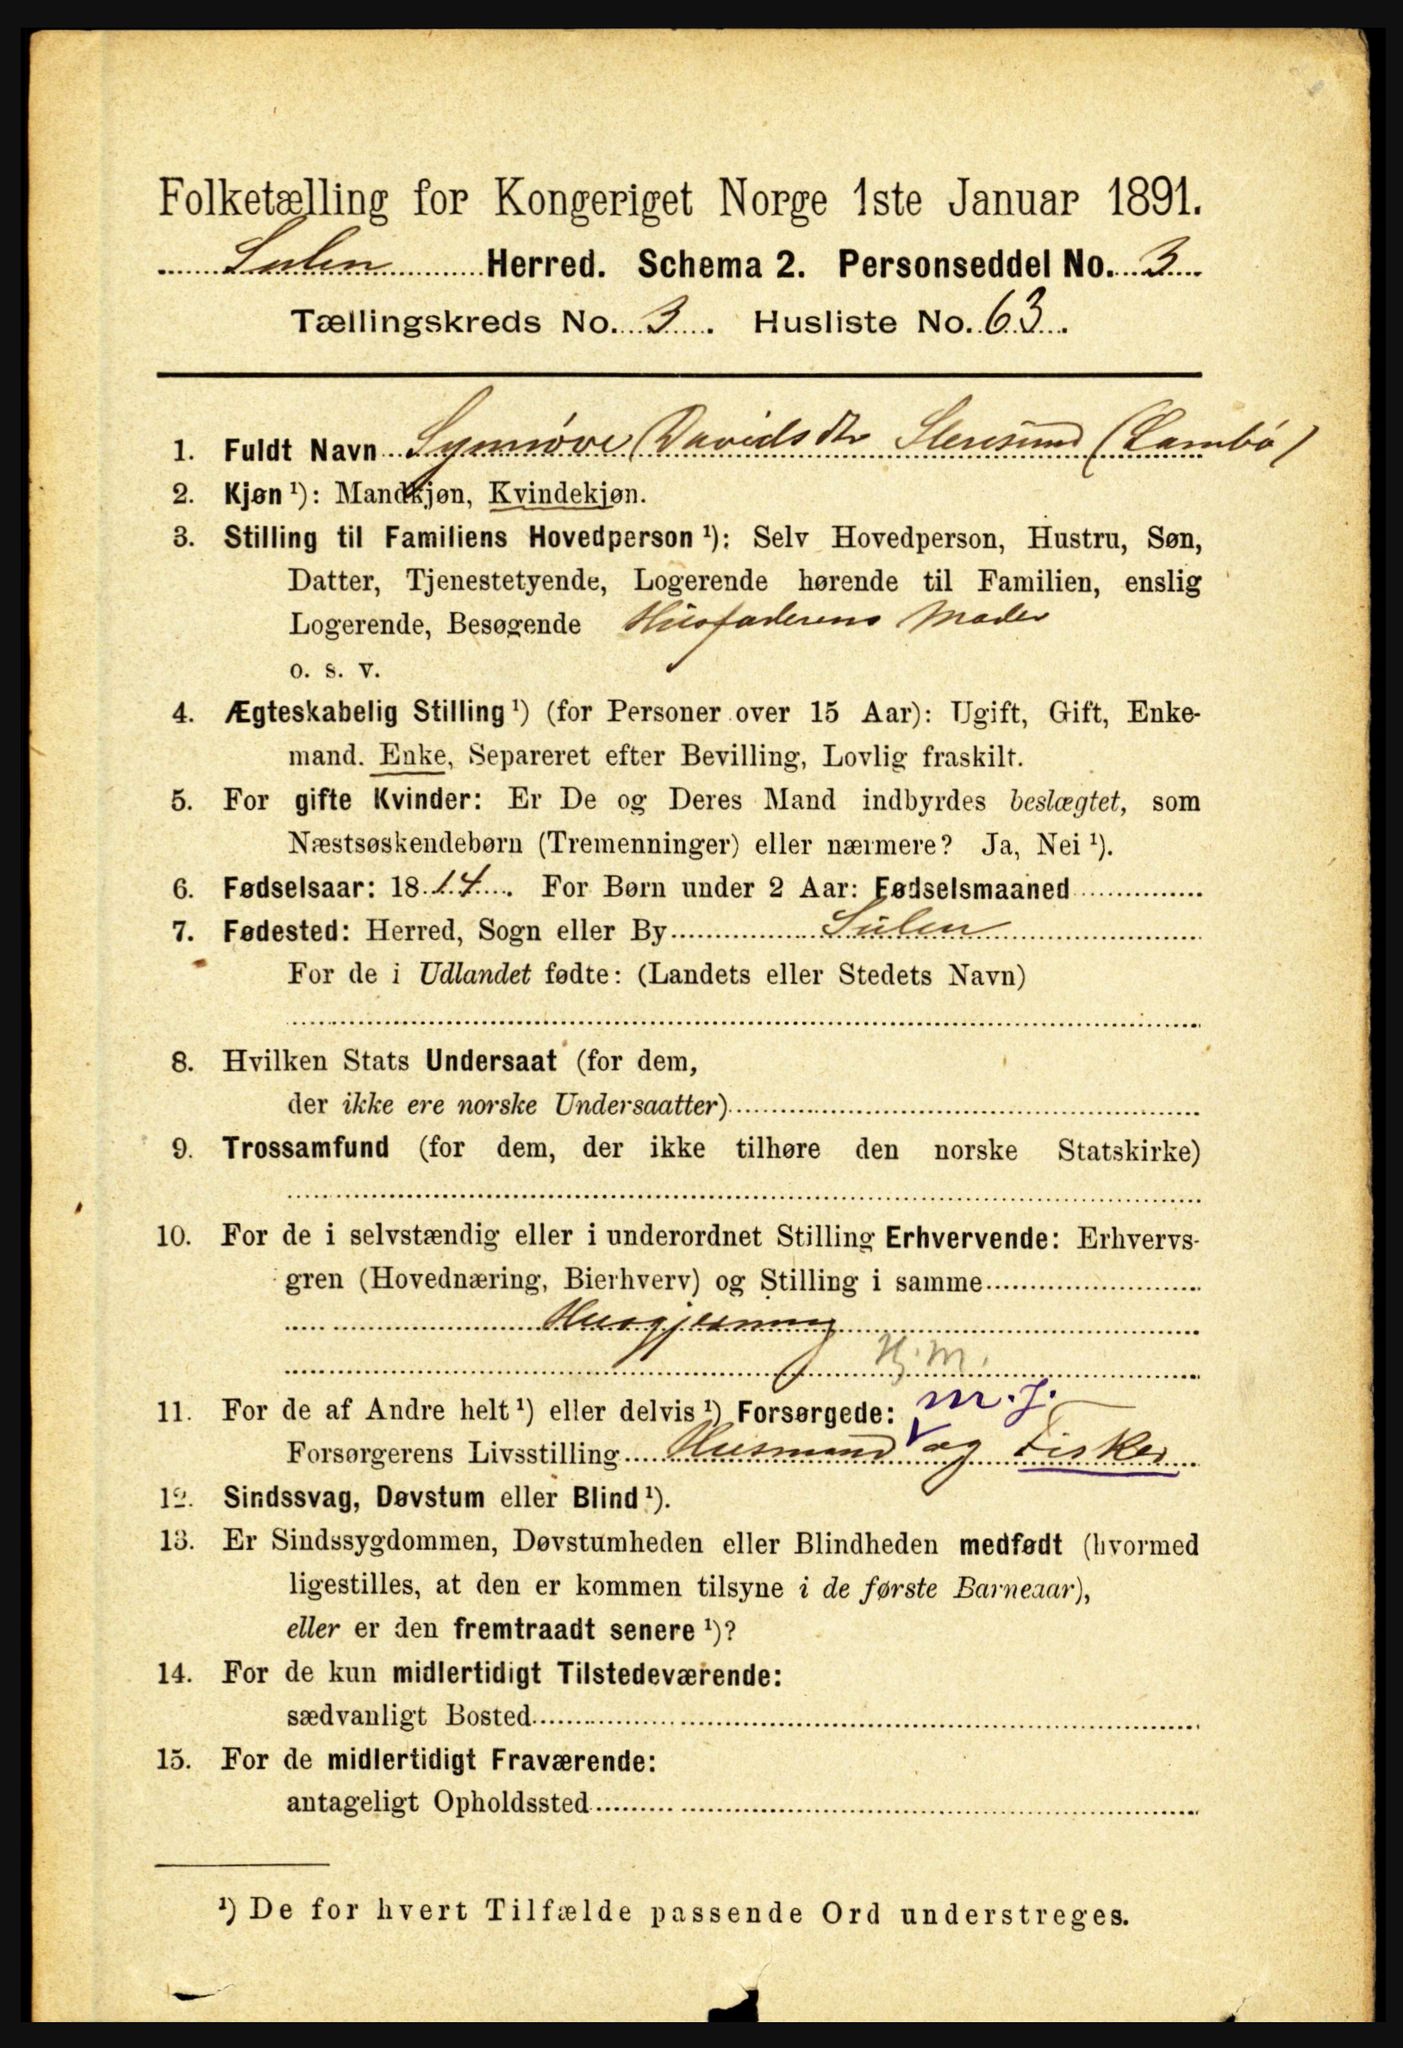 Folketælling for Kongeriget Norge 1ste Januar 1891.
Sulen Herred. Schema 2. Personseddel No. 3
Tællingskreds No. 3. Husliste No. 63.
1. Fuldt Navn Synnøve Davidsdtr Steresund (Lambø)
2. Kjøn¹): Mandkjøn, Kvindekjøn.
3. Stilling til Familiens Hovedperson¹): Selv Hovedperson, Hustru, Søn,
Datter, Tjenestetyende, Logerende hørende til Familien, enslig
Logerende, Besøgende Husfaderens Moder
o. s. v.
4. Ægteskabelig Stilling¹) (for Personer over 15 Aar): Ugift, Gift, Enke-
mand. Enke, Separeret efter Bevilling, Lovlig fraskilt.
5. For gifte Kvinder: Er De og Deres Mand indbyrdes beslægtet, som
Næstsøskendebørn (Tremenninger) eller nærmere? Ja, Nei¹).
6. Fødselsaar: 1814. For Børn under 2 Aar: Fødselsmaaned
7. Fødested: Herred, Sogn eller By Sulen
For de i Udlandet fødte: (Landets eller Stedets Navn)
8. Hvilken Stats Undersaat (for dem,
der ikke ere norske Undersaatter)
9. Trossamfund (for dem, der ikke tilhøre den norske Statskirke)
10. For de i selvstændig eller i underordnet Stilling Erhvervende: Erhvervs-
gren (Hovednæring, Bierhverv) og Stilling i samme
Husgjerning
Hj. M.
11. For de af Andre helt¹) eller delvis¹) Forsørgede: m. j.
Forsørgerens Livsstilling Husmand og Fisker
12. Sindssvag, Døvstum eller Blind¹).
13. Er Sindssygdommen, Døvstumheden eller Blindheden medfødt (hvormed
ligestilles, at den er kommen tilsyne i de første Barneaar),
eller er den fremtraadt senere¹)?
14. For de kun midlertidigt Tilstedeværende:
sædvanligt Bosted
15. For de midlertidigt Fraværende:
antageligt Opholdssted
¹) De for hvert Tilfælde passende Ord understreges.